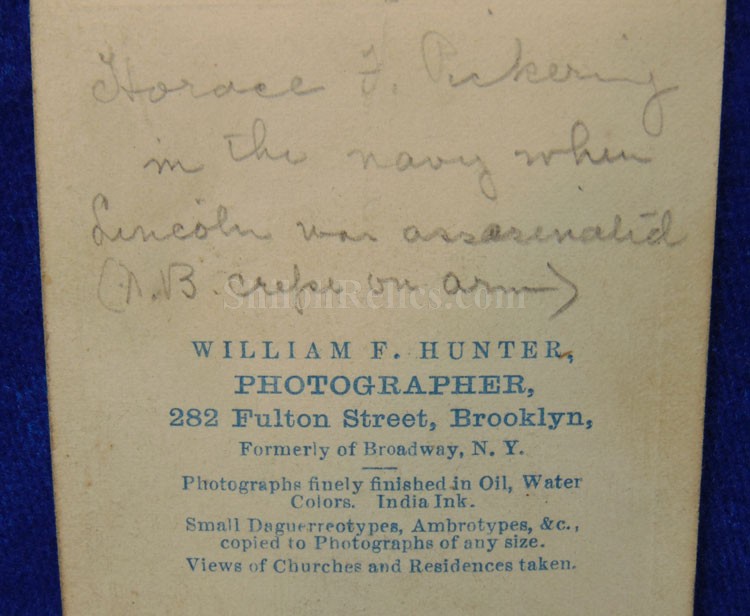 Horace F. Pickering
in the navy when
Lincoln was assasinated
(N.B. crepe on arm)
ShilohRelics.com
WILLIAM F. HUNTER,
PHOTOGRAPHER,
282 Fulton Street, Brooklyn,
Formerly of Broadway, N. Y.
Photographs finely finished in Oil, Water
Colors. India Ink.
Small Daguerreotypes, Ambrotypes, &c.,
copied to Photographs of any size.
Views of Churches and Residences taken.